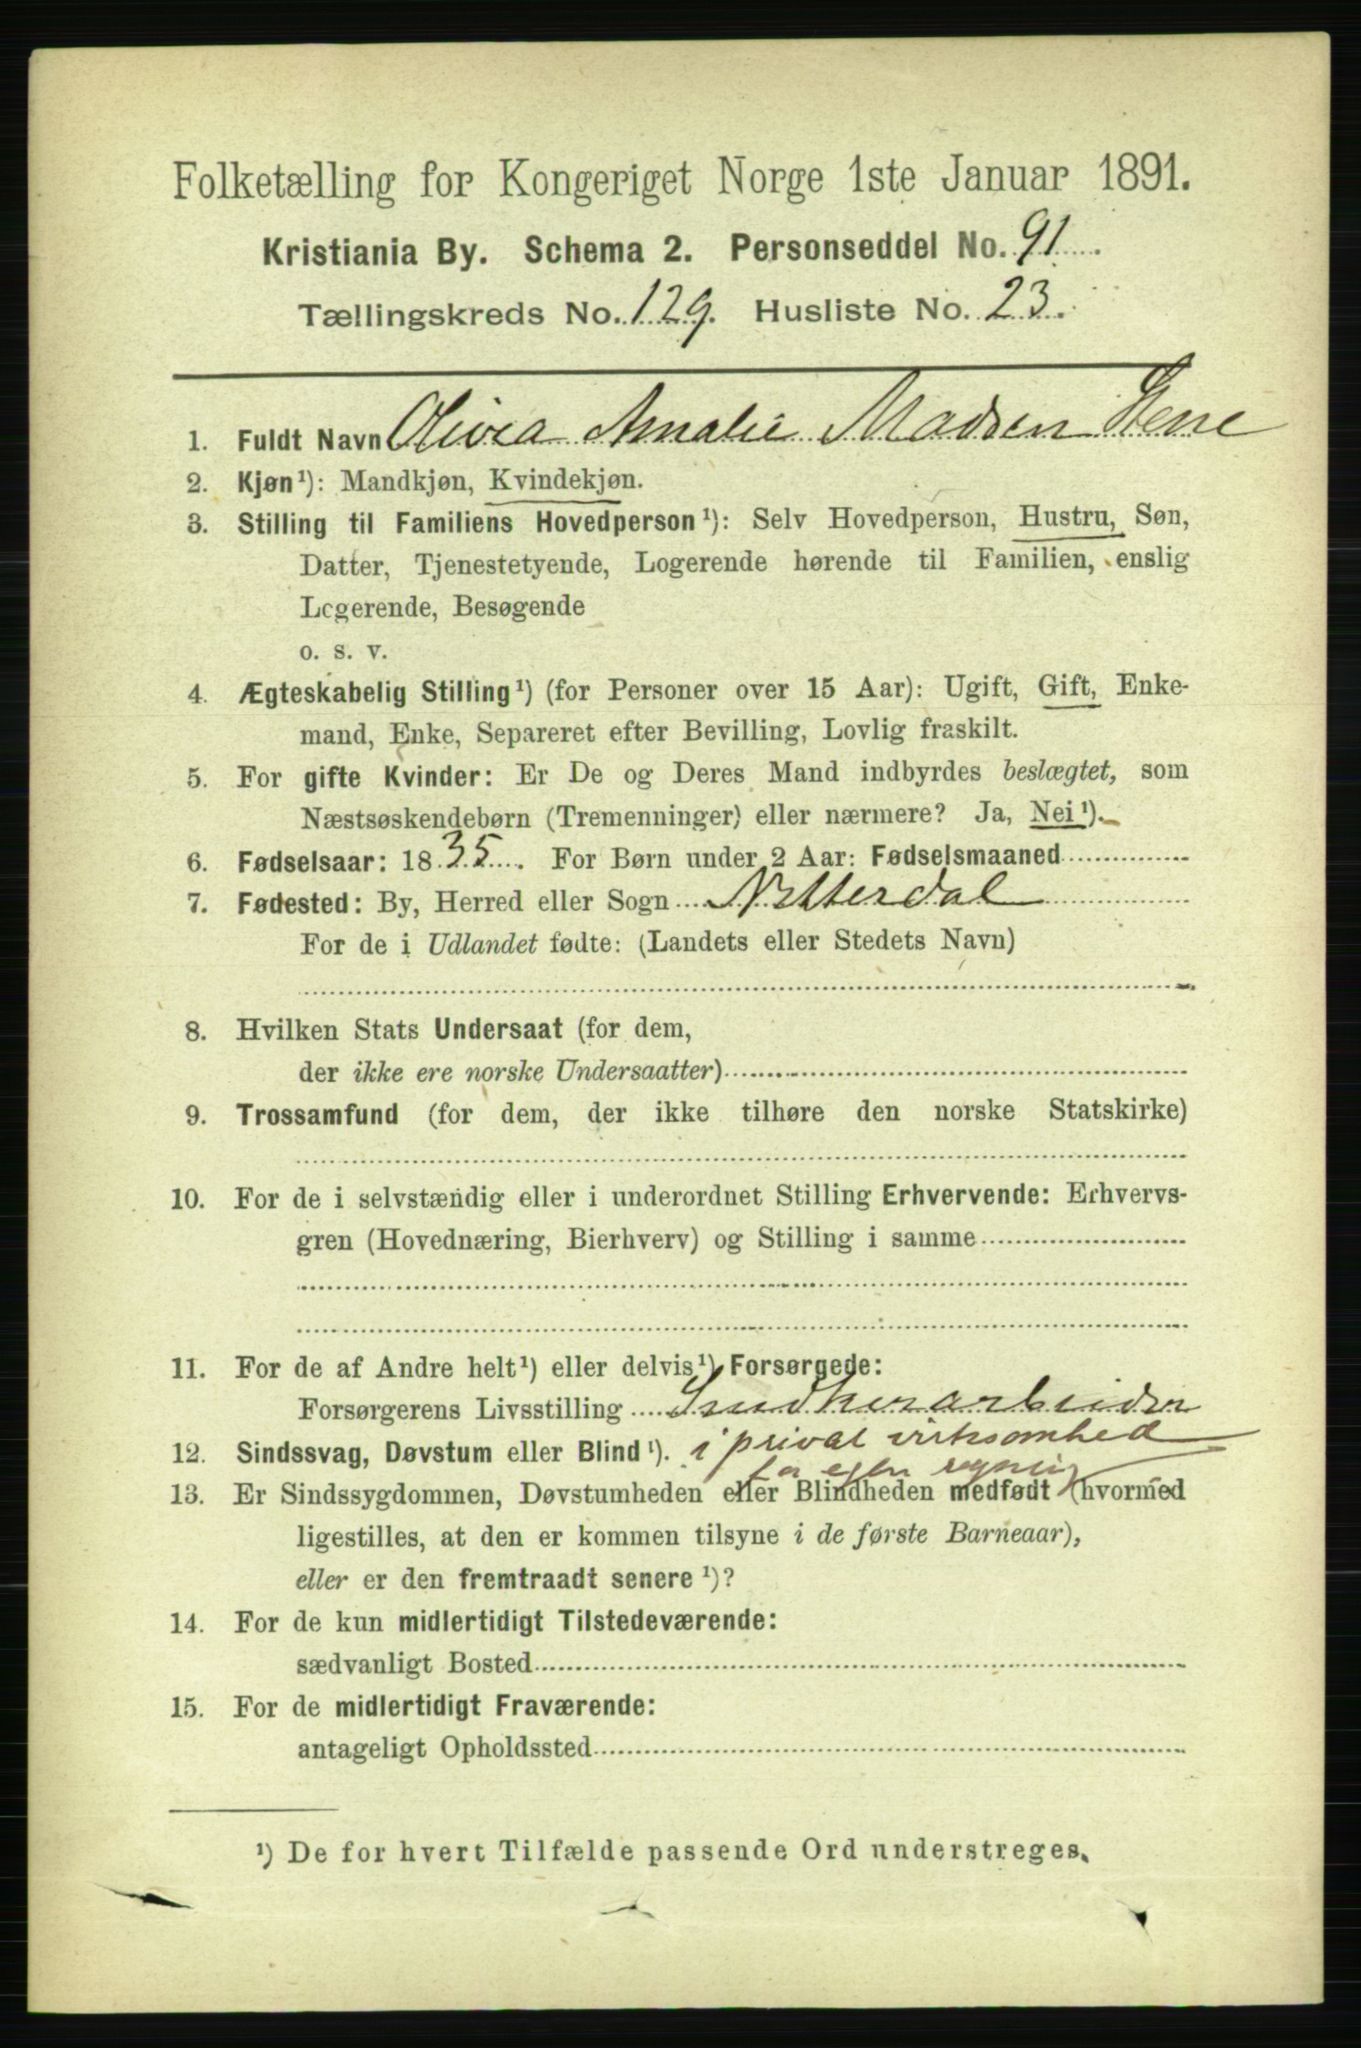 Folketælling for Kongeriget Norge 1ste Januar 1891.
Kristiania By. Schema 2. Personseddel No. 91
Tællingskreds No. 129. Husliste No. 23.
1. Fuldt Navn Olivia Amalie Madsen
2. Kjøn¹): Mandkjøn, Kvindekjøn.
3. Stilling til Familiens Hovedperson¹): Selv Hovedperson, Hustru, Søn,
Datter, Tjenestetyende, Logerende hørende til Familien, enslig
Logerende, Besøgende
o. s. v.
4. Ægteskabelig Stilling¹) (for Personer over 15 Aar): Ugift, Gift, Enke-
mand, Enke, Separeret efter Bevilling, Lovlig fraskilt.
5. For gifte Kvinder: Er De og Deres Mand indbyrdes beslægtet, som
Næstsøskendebørn (Tremenninger) eller nærmere? Ja, Nei¹).
6. Fødselsaar: 1835. For Børn under 2 Aar: Fødselsmaaned
7. Fødested: By, Herred eller Sogn Nitterdal
For de i Udlandet fødte: (Landets eller Stedets Navn)
8. Hvilken Stats Undersaat (for dem,
der ikke ere norske Undersaatter)
9. Trossamfund (for dem, der ikke tilhøre den norske Statskirke)
10. For de i selvstændig eller i underordnet Stilling Erhvervende: Erhvervs-
gren (Hovednæring, Bierhverv) og Stilling i samme
11. For de af Andre helt¹) eller delvis¹) Forsørgede:
Forsørgerens Livsstilling Snedkerarbeider
12. Sindssvag, Døvstum eller Blind¹). i privat virksomhed
for egen regning
13. Er Sindssygdommen, Døvstumheden eller Blindheden medfødt (hvormed
ligestilles, at den er kommen tilsyne i de første Barneaar),
eller er den fremtraadt senere¹)?
14. For de kun midlertidigt Tilstedeværende:
sædvanligt Bosted
15. For de midlertidigt Fraværende:
antageligt Opholdssted
¹) De for hvert Tilfælde passende Ord understreges.